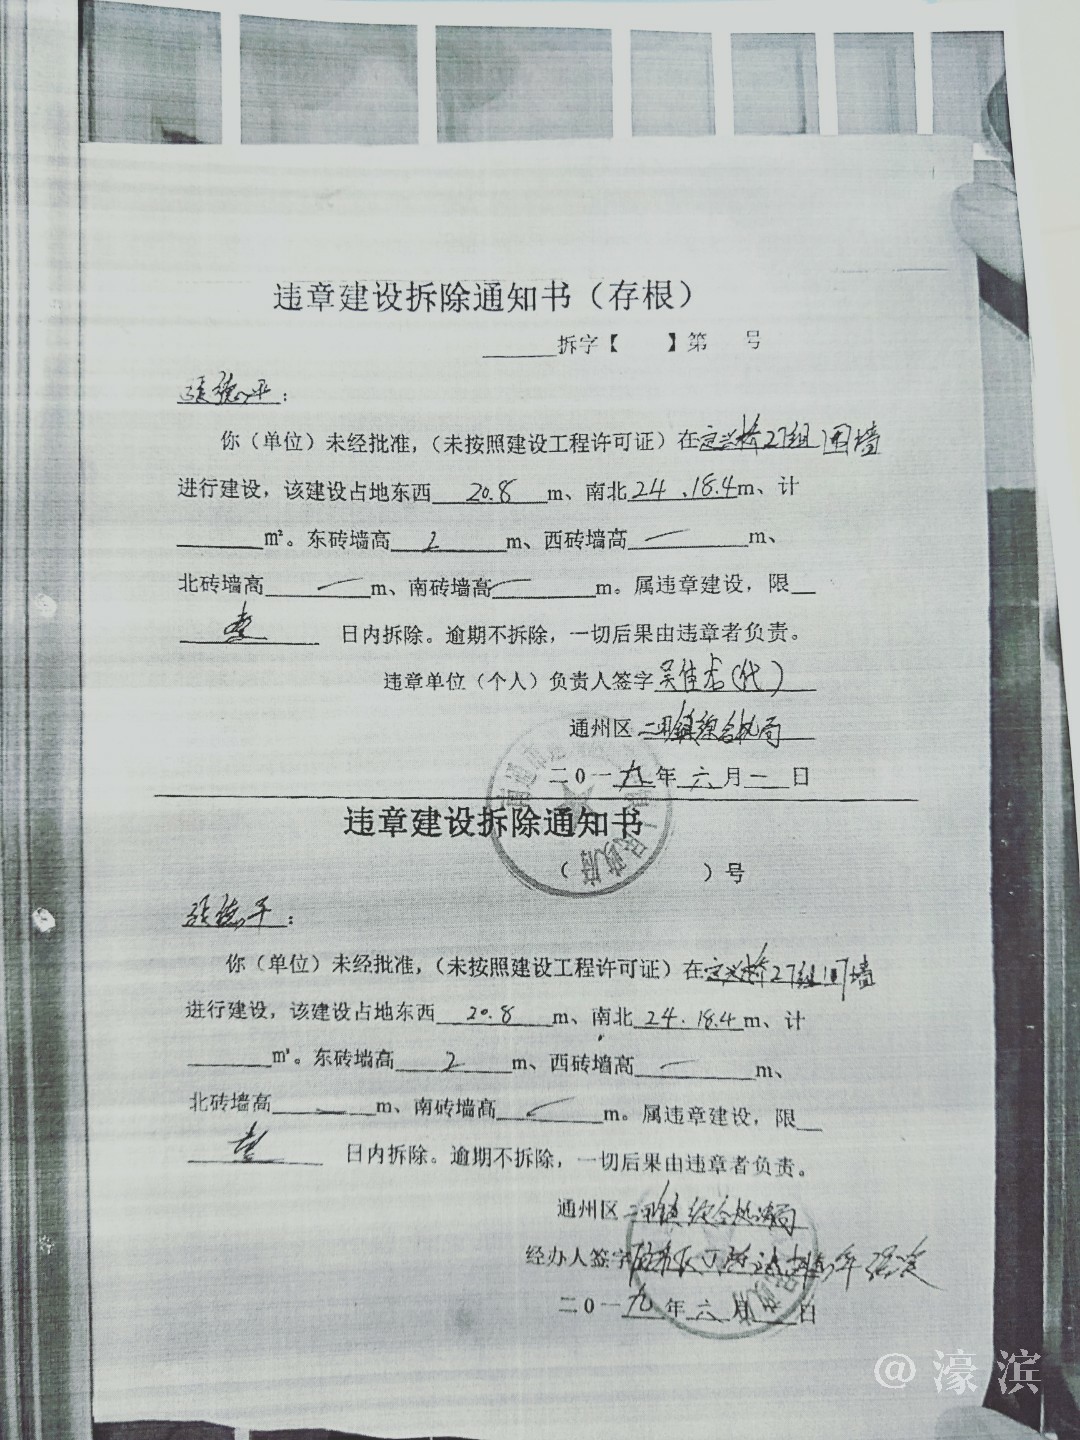 违章建设拆除通知书（存根）
拆字【 】第 号
张德平：
你（单位）未经批准，（未按照建设工程许可证）在定兴桥27组围墙
进行建设，该建设占地东西20.8m、南北24.18.4m、计
㎡。东砖墙高2m、西砖墙高一m、
北砖墙高一m、南砖墙高一m。属违章建设，限
壹 日内拆除。逾期不拆除，一切后果由违章者负责。
违章单位（个人）负责人签字吴佳杰(代)
通州区二甲镇综合执局
二0一九年六月一日
违章建设拆除通知书
（ ）号
张德平：
你（单位）未经批准，（未按照建设工程许可证）在定兴桥27组围墙
进行建设，该建设占地东西20.8m、南北24.18.4m、计
㎡。东砖墙高2m、西砖墙高一m、
北砖墙高一m、南砖墙高一m。属违章建设，限
壹 日内拆除。逾期不拆除，一切后果由违章者负责。
通州区二甲镇综合执法局
经办人签字
二0一九年六月 日
人民政府
@濠滨